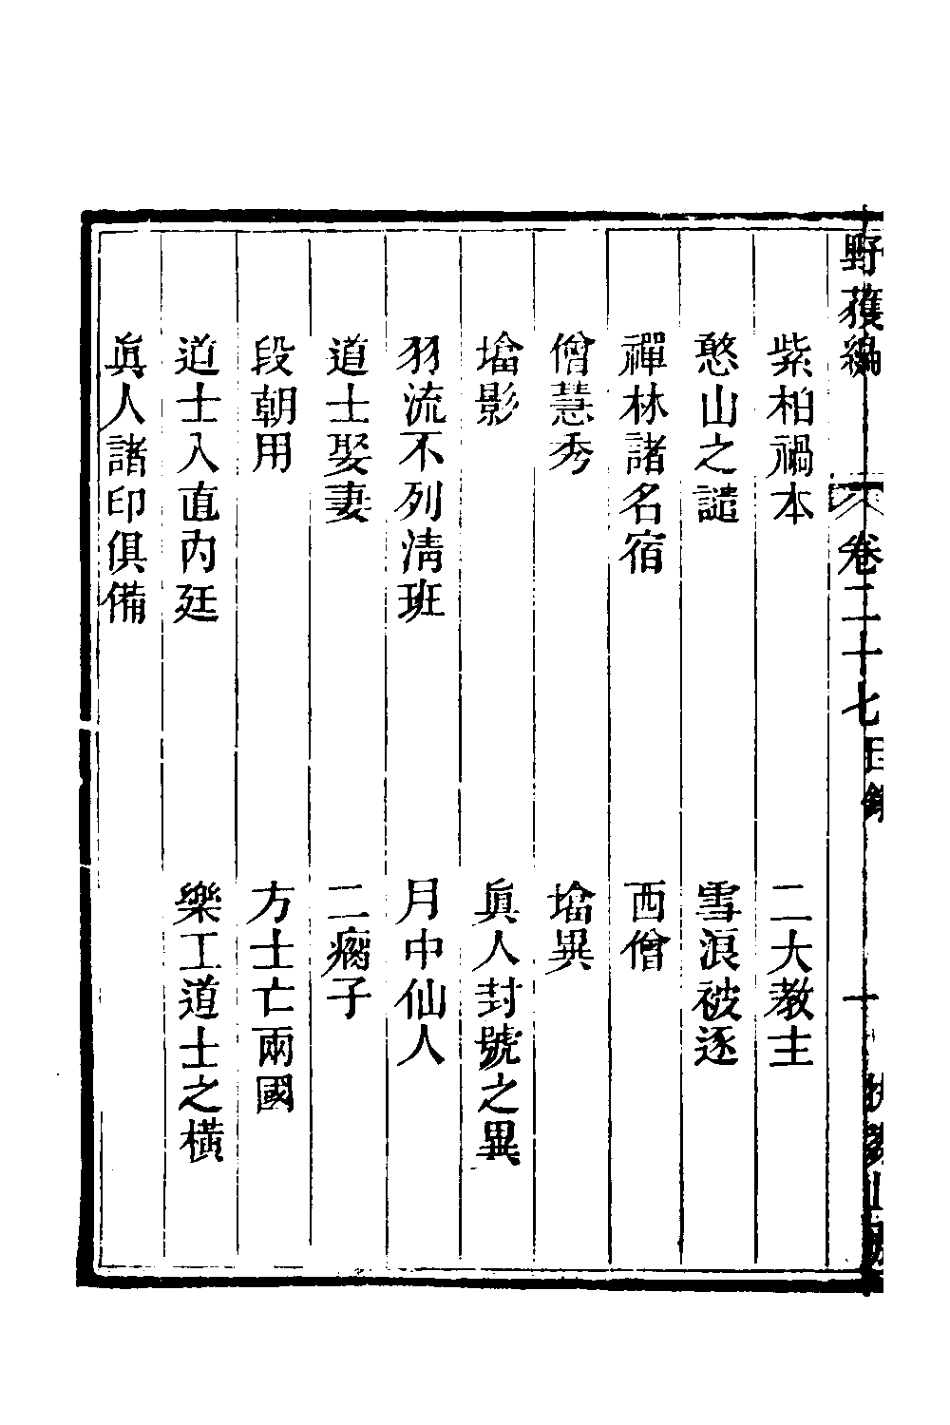 野獲編 卷二十七 目錄 一
紫柏禍本 二大教主
憨山之譴 雪浪被逐
禪林諸名宿 西僧
僧慧秀 墖異
墖影 眞人封號之異
羽流不列清班 月中仙人
道士娶妻 二瘸子
段朝用 方士亡兩國
道士入直內廷 樂工道士之橫
眞人諸印俱備